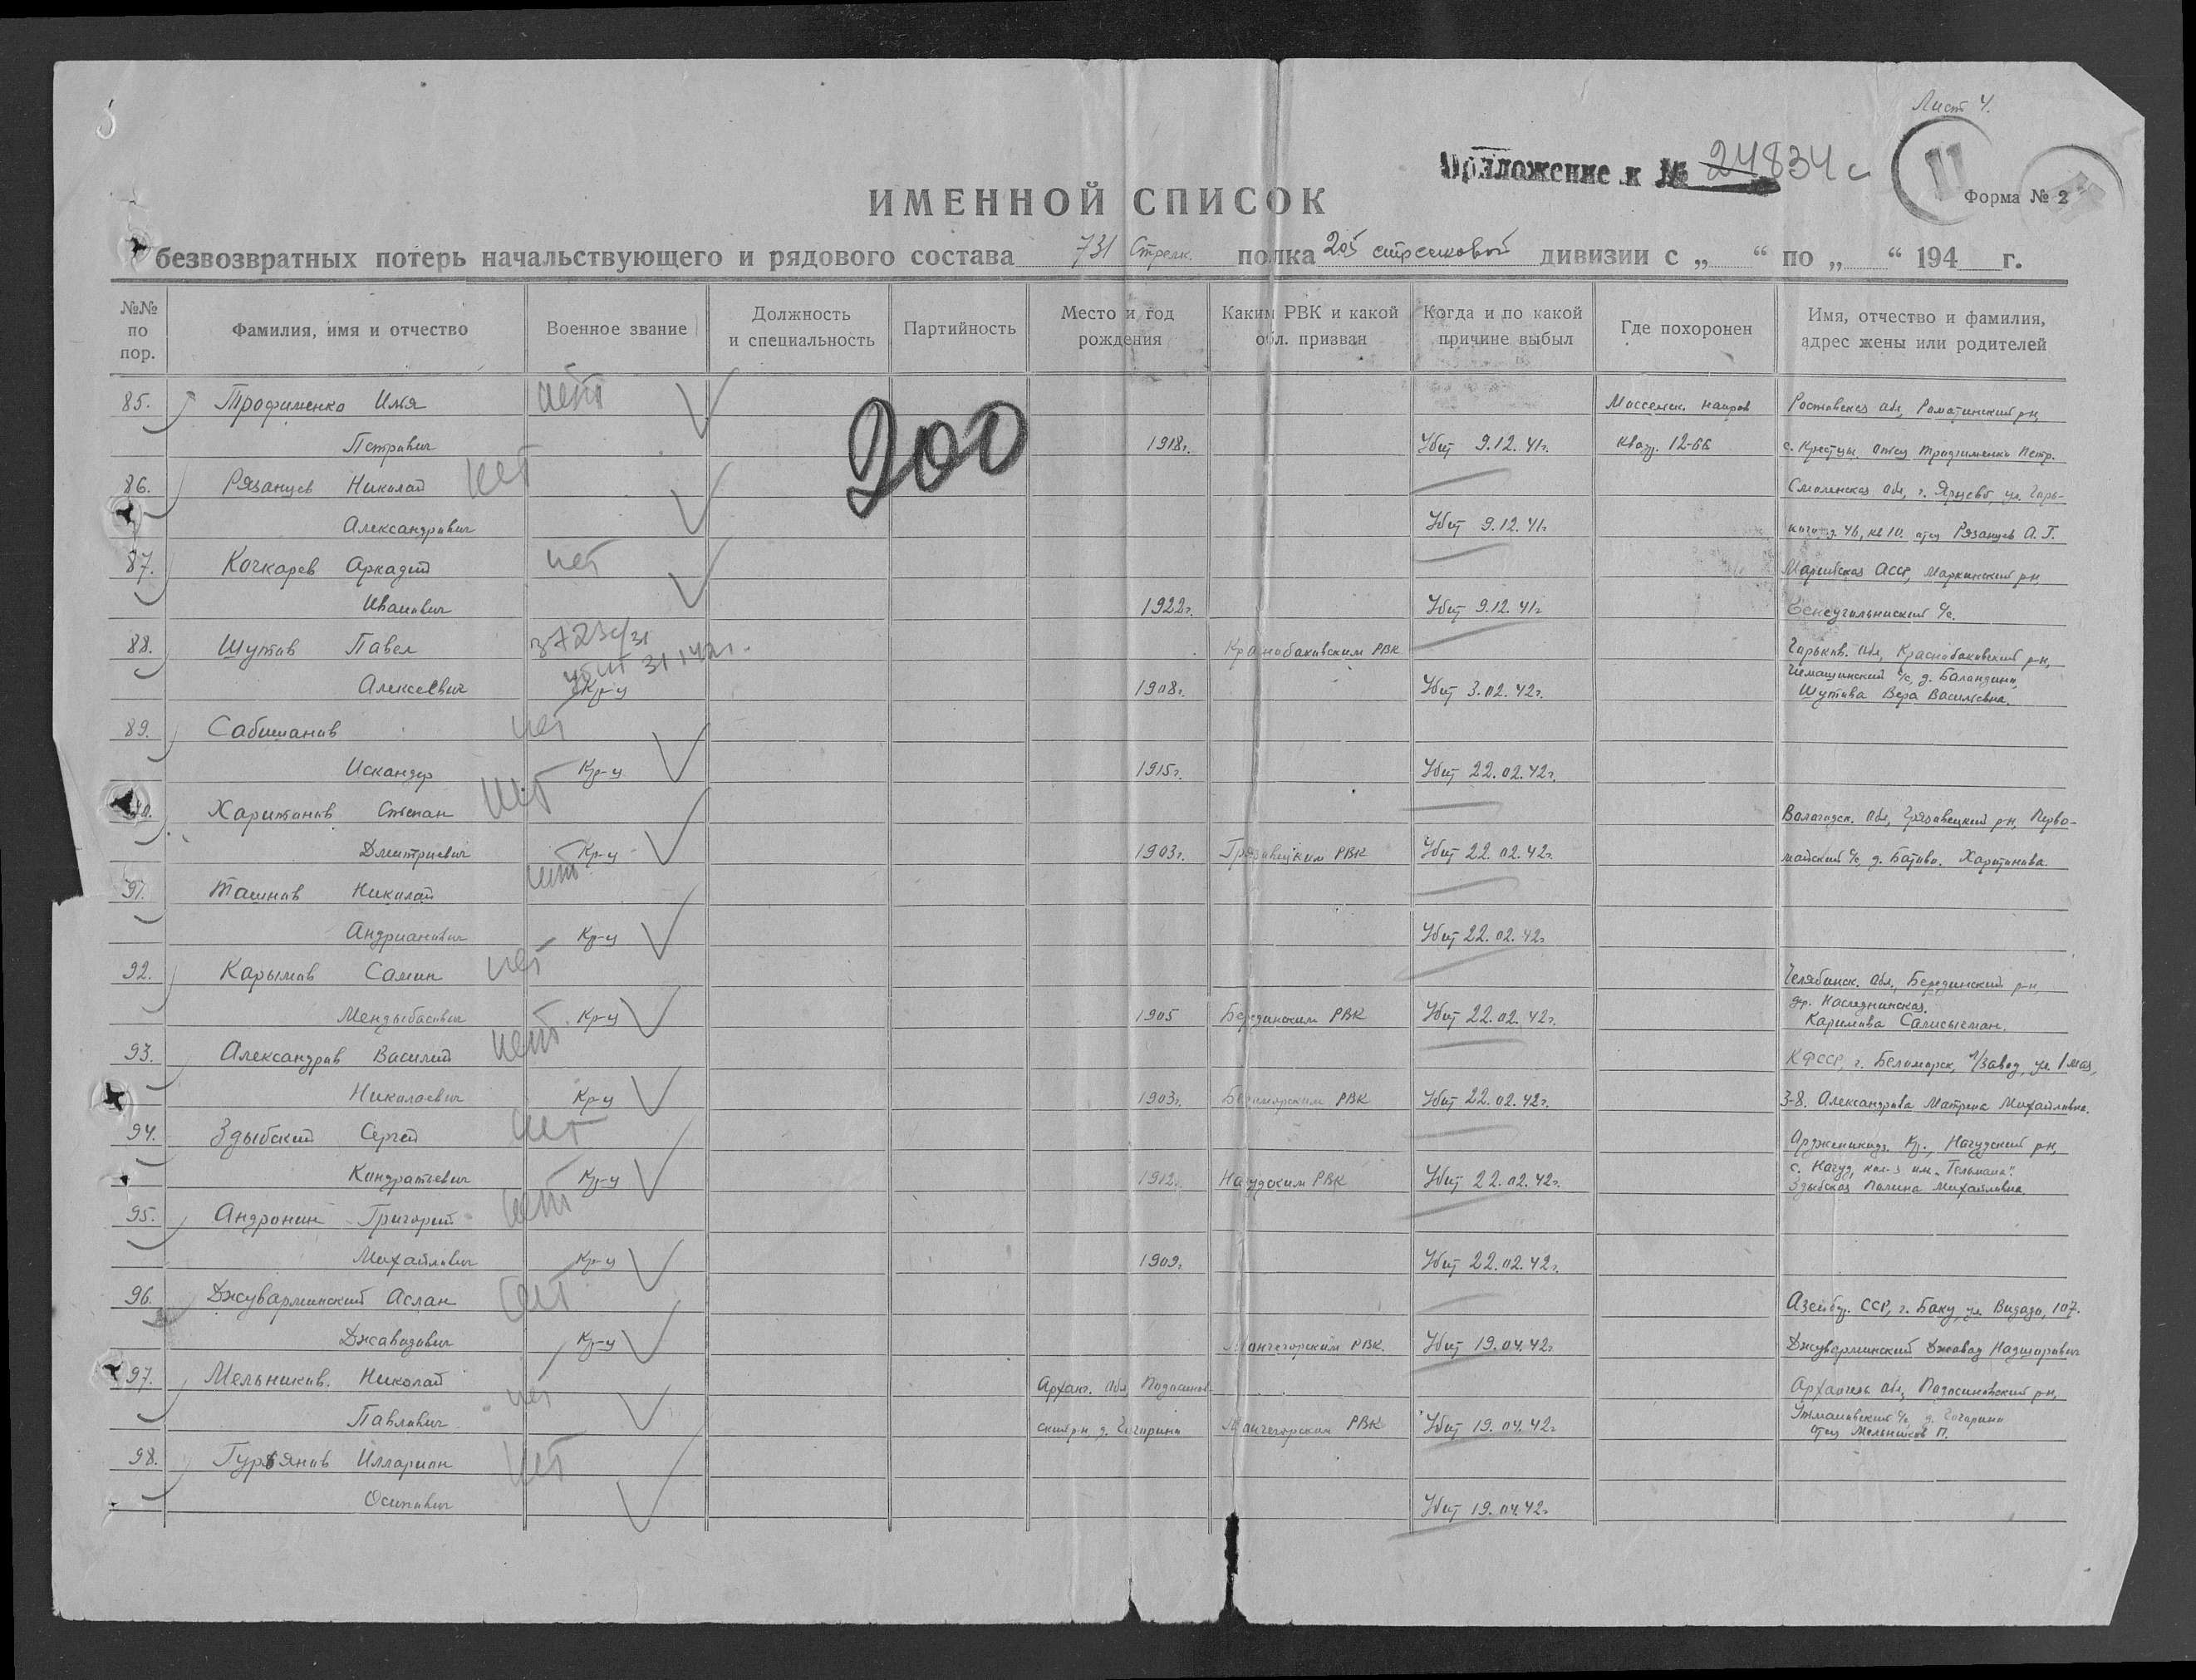 Лист 4.
Приложение к № 24834с
11
Форма № 2
ИМЕННОЙ СПИСОК
безвозвратных потерь начальствующего и рядового состава 731 Стрелк. полка 205 стрелковой дивизии с „ “ по „ “ 194 г.
№№ по пор.
Фамилия, имя и отчество
Военное звание
Должность и специальность
Партийность
Место и год рождения
Каким РВК и какой обл. призван
Когда и по какой причине выбыл
Где похоронен
Имя, отчество и фамилия, адрес жены или родителей
200
85. Трофименко Илья нет Массельск. направ Ростовская обл,
Петрович 1918г. Убит 9.12.41г. квадр. 12-66 отец Трофименко Петр.
86. Рязанцев Николай нет Смоленская обл, г. Ярцево, ул. Горь-
Александрович Убит 9.12.41г кого, д. 46, кв 10. отец Рязанцев А. Г.
87. Кочкарев Аркадий нет Марийская АССР, Маркинский р-н,
Иванович 1922г. Убит 9.12.41г
88. Шутов Павел Краснобаковским РВК Горьков. обл, Краснобаковский р-н,
убит 31 1 42 г.
Алексеевич Кр-ц 1908г. Убит 3.02.42г. с/с, д. Баландино,
Шутова Вера Васильевна.
89. Сабиманов нет
Искандер Кр-ц 1915г. Убит 22.02.42г.
90. Харитонов Степан нет Вологодск. обл, Грязовецкий р-н, Перво-
Дмитриевич Кр-ц 1903г. Грязовецким РВК Убит 22.02.42г. майский с/с, д. Батово. Харитонова
91. Ташнов Николай нет
Андрианович Кр-ц Убит 22.02.42г
92. Карымов Самин нет Челябинск. обл., Берединский р-н,
Мендыбаевич Кр-ц 1905 Берединским РВК Убит 22.02.42г. др. Наследнинская.
Каримова
93. Александров Василий нет КФССР, г. Беломорск, л/завод, ул. 1 мая,
Николаевич Кр-ц 1903г. Беломорским РВК Убит 22.02.42г. 3-8. Александрова Матрена Михайловна.
94. Здыбский Сергей нет Орджоникидз. Кр., Нагудский р-н,
Кондратьевич Кр-ц 1912г. Нагудским РВК Убит 22.02.42г. с. Нагуд, кол-з им. „Тельмана“.
Здыбская Полина Михайловна
95. Андронин Григорий нет
Михайлович Кр-ц 1909г. Убит 22.02.42г.
96. Джуварлинский Аслан нет Азейбр. ССР, г. Баку, ул. Видади, 107.
Джавадович Кр-ц Мончегорским РВК. Убит 19.04.42г Джуварлинский Джавад
97. Мельников. Николай нет Архан. обл, Подосинов- Архангель обл, Подосиновский р-н,
Павлович ский р-н д. Гогарино Мончегорским РВК Убит 19.04.42г Утмановский с/с, д. Гогарино
отец Мельников П.
98. Гурьянов Илларион нет
Осипович Убит 19.04.42г